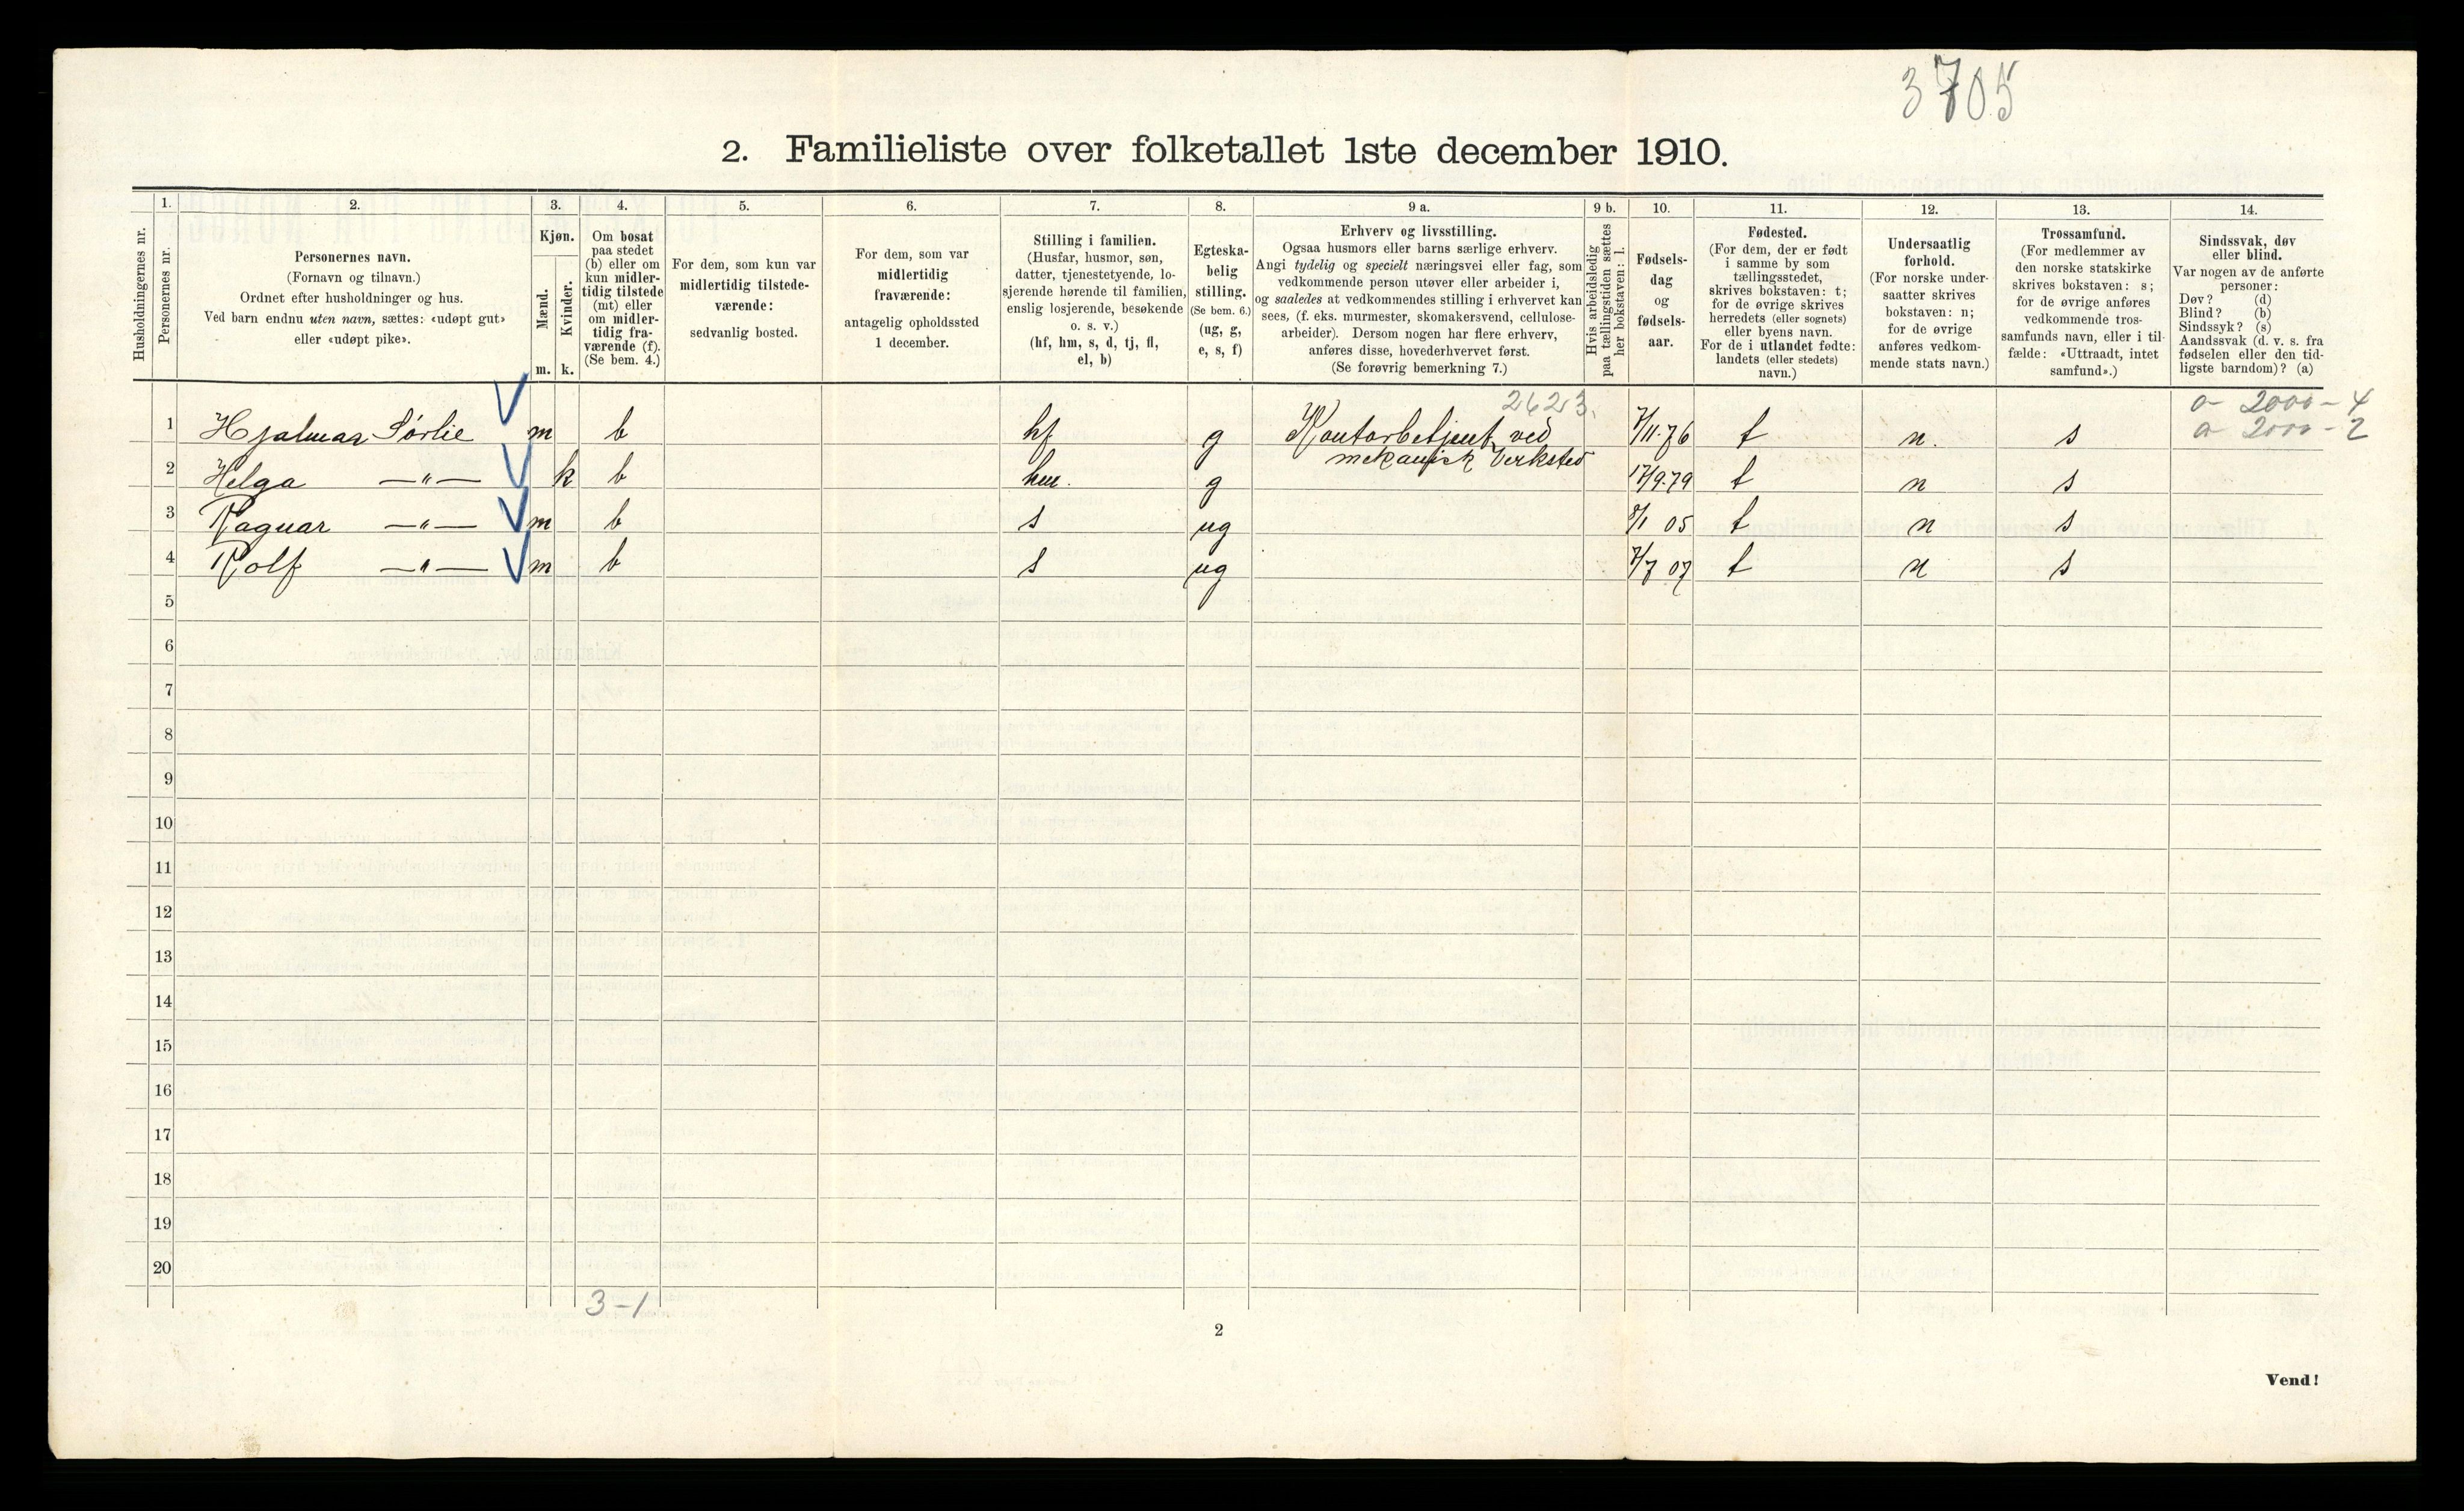 3705
2. Familieliste over folketallet 1ste december 1910.
Husholdningernes nr.
1.
Personernes nr.
2.
Personernes navn.
(Fornavn og tilnavn.)
Ordnet efter husholdninger og hus.
Ved barn endnu uten navn, sættes: «udøpt gut»
eller «udøpt pike».
3.
Kjøn.
Mænd.
Kvinder.
m. k.
4.
Om bosat
paa stedet
(b) eller om
kun midler-
tidig tilstede
(mt) eller
om midler-
tidig fra-
værende (f).
(Se bem. 4.)
5.
For dem, som kun var
midlertidig tilstede-
værende:
sedvanlig bosted.
6.
For dem, som var
midlertidig
fraværende:
antagelig opholdssted
1 december.
7.
Stilling i familien.
(Husfar, husmor, søn,
datter, tjenestetyende, lo-
sjerende hørende til familien,
enslig losjerende, besøkende
o. s. v.)
(hf, hm, s, d, tj, fl,
el, b)
8.
Egteska-
belig
stilling.
(Se bem. 6.)
(ug, g,
e, s, f)
9 a.
Erhverv og livsstilling.
Ogsaa husmors eller barns særlige erhverv.
Angi tydelig og specielt næringsvei eller fag, som
vedkommende person utøver eller arbeider i,
og saaledes at vedkommendes stilling i erhvervet kan
sees, (f. eks. murmester, skomakersvend, cellulose-
arbeider). Dersom nogen har flere erhverv,
anføres disse, hovederhvervet først.
(Se forøvrig bemerkning 7.)
9 b.
Hvis arbeidsledig
paa tællingstiden sættes
her bokstaven: l.
10.
Fødsels-
dag
og
fødsels-
aar.
11.
Fødested.
(For dem, der er født
i samme by som
tællingsstedet,
skrives bokstaven: t;
for de øvrige skrives
herredets (eller sognets)
eller byens navn.
For de i utlandet fødte:
landets (eller stedets)
navn.)
12.
Undersaatlig
forhold.
(For norske under-
saatter skrives
bokstaven: n;
for de øvrige
anføres vedkom-
mende stats navn.)
13.
Trossamfund.
(For medlemmer av
den norske statskirke
skrives bokstaven: s;
for de øvrige anføres
vedkommende tros-
samfunds navn, eller i til-
fælde: «Uttraadt, intet
samfund».)
14.
Sindssvak, døv
eller blind.
Var nogen av de anførte
personer:
Døv? (d)
Blind? (b)
Sindssyk? (s)
Aandssvak (d. v. s. fra
fødselen eller den tid-
ligste barndom)? (a)
2623. 0- 2000 - 4
1 Hjalmar Sørlie m b hf g Kontorbetjent ved 7/11-76 t n. s 0- 2000 - 2
mekanisk Verksted
2 Helga —"— k b hm. g 17/9-79 t n s
3 Ragnar —"— m b s ug 8/1 05 t n s
4 Rolf —"— m b s ug 7/7 07 t n s
5
6
7
8
9
10
11
12
13
14
15
16
17
18
19
20
3-1
2
Vend!